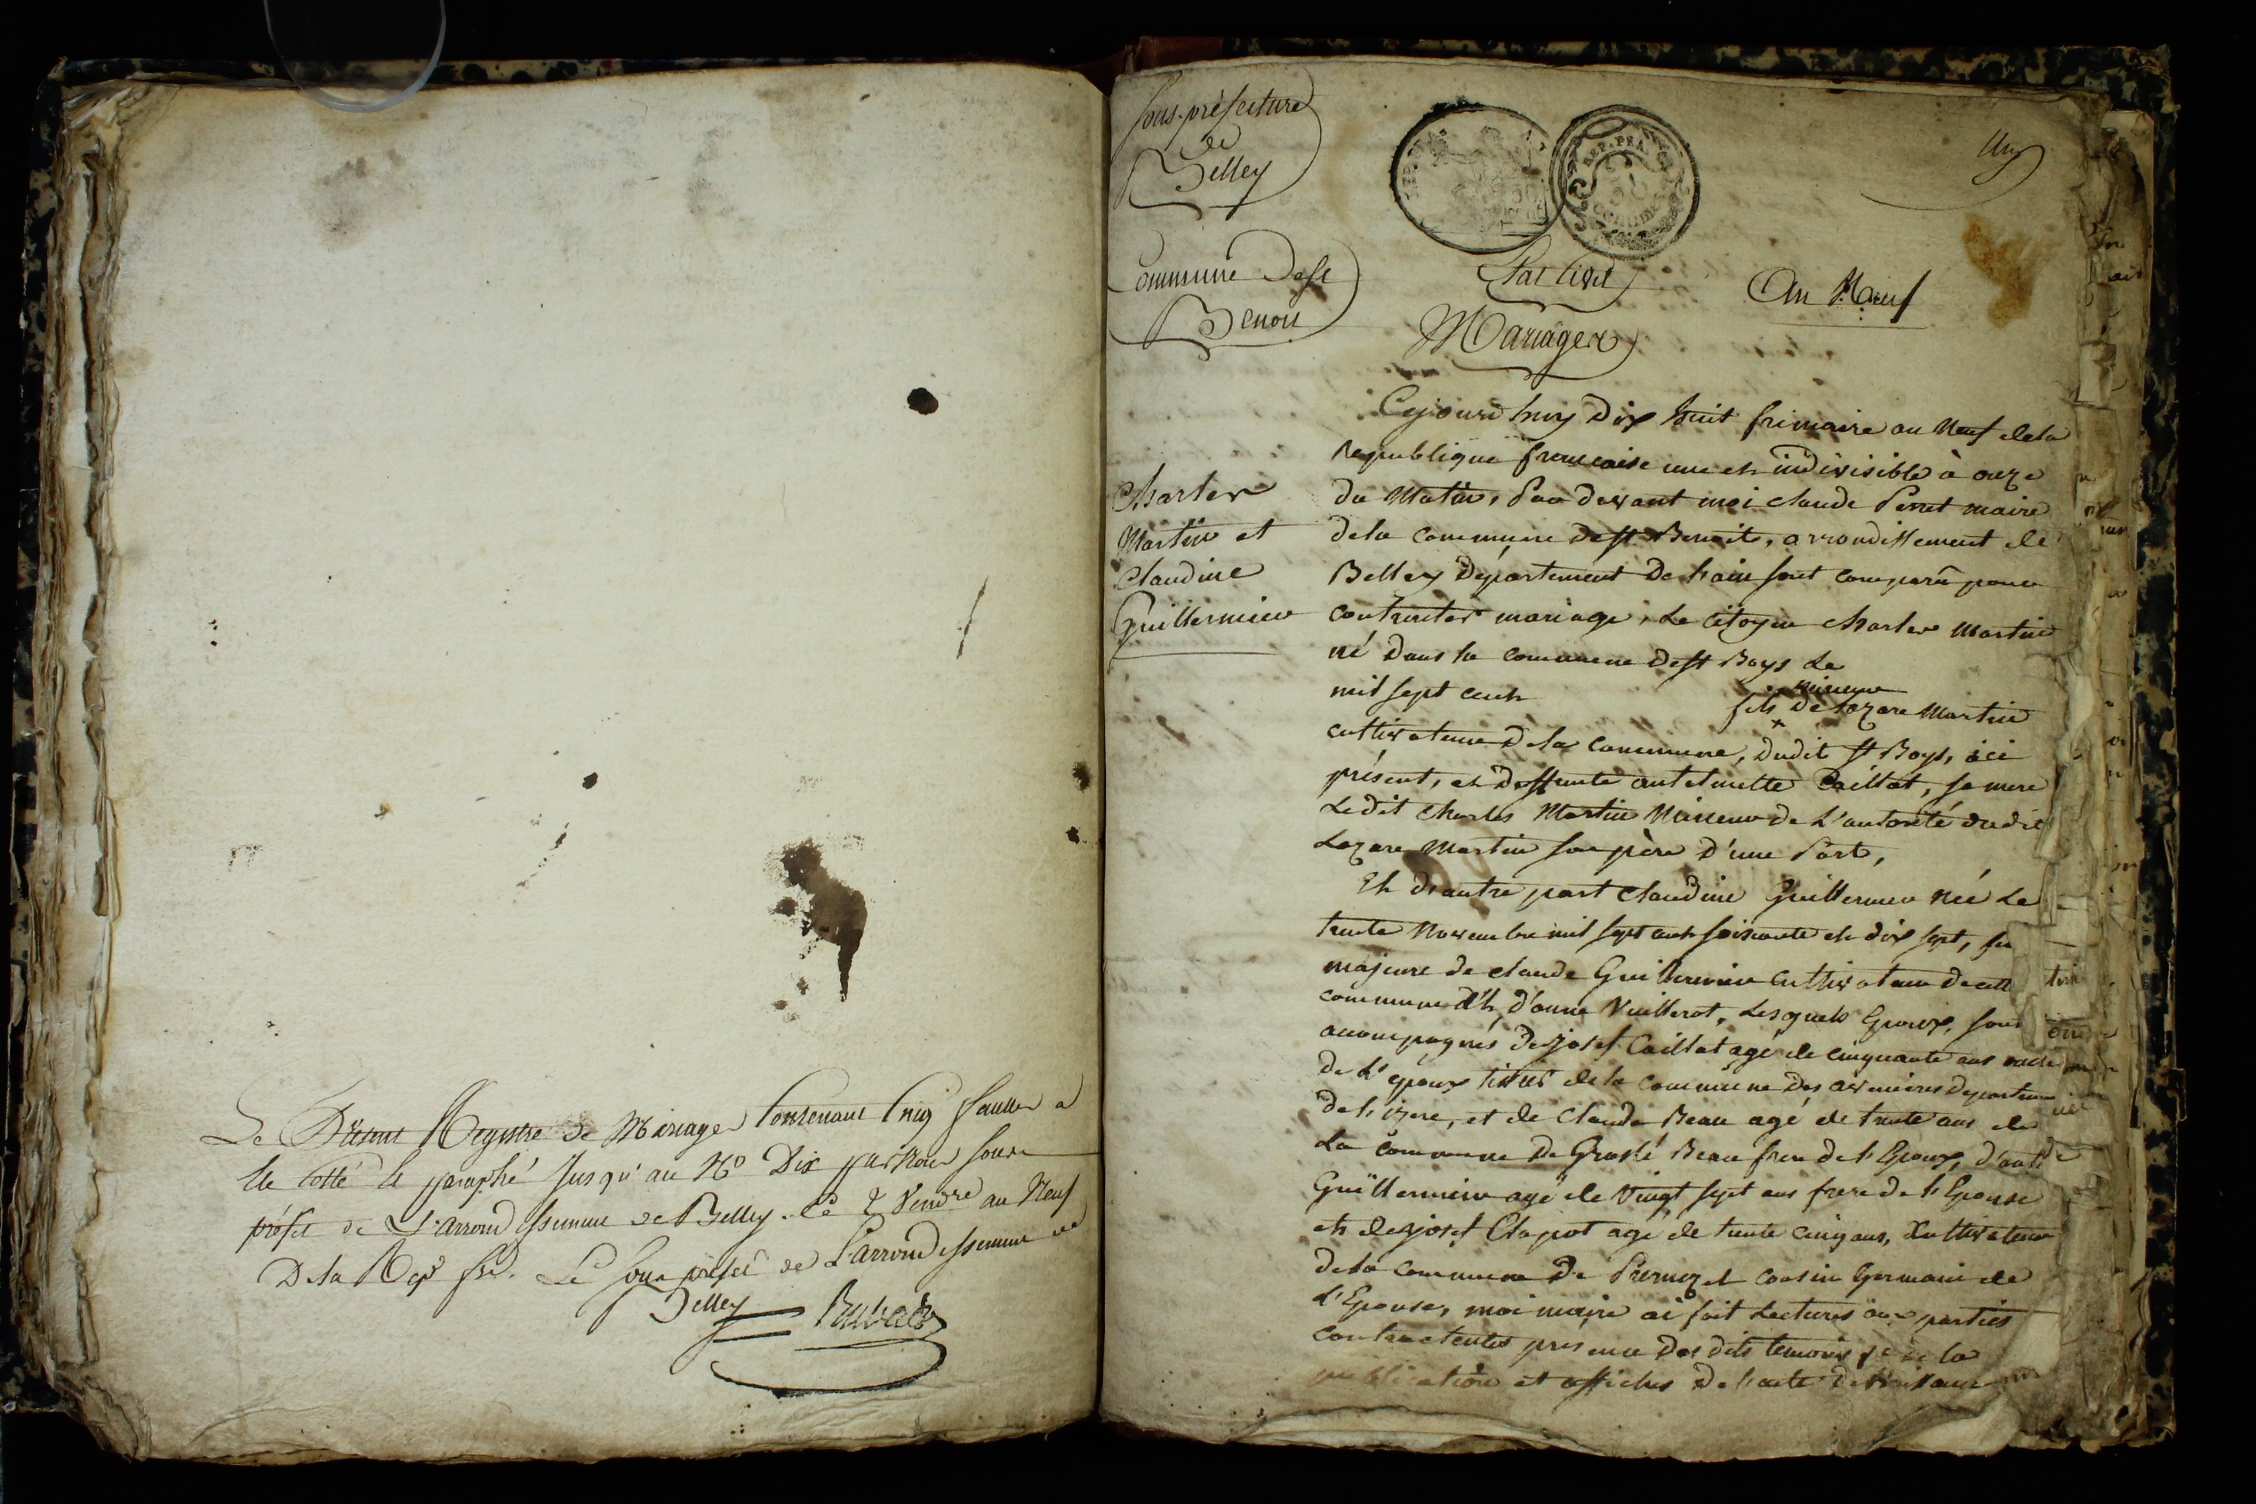 Le Présent Registre de Mariages Contenant Cinq feuilles a
été Cotté et paraphé jusqu'au No Dix par Nous Sous
préfet de L'arrondissement de Belley. Le 2 Vendre an Neuf
De la Rep. fse. Le Sous préfet de L'arrondissement de
Belley
Sous-préfecture
de
Belley
Un
Commune De st
Benoit
REP. FRA.
Etat Civil
Mariages
An Neuf
Charles
Martin et
Claudine
Guillermin
Cejourd'huy Dix huit frimaire an Neuf dela
Republique francaise une et indivisible à onze
du Matin, Par devant moi Claude Perret maire
dela Commune de st Benoit, arrondissement de
Belley Département De l'ain sont comparû pour
contracter mariage, Le Citoyen Charles Martin
né Dans la commune de st Boys Le
mil sept cent fils mineur De Lazare Martin
cultivateur De la Commune, Dudit st Boys, ici
présent, et Deffunte antelmette Caillat, sa mere
Ledit Charles Martin Mineur de L'autorité dudit
Lazare Martin son père D'une Part,
Et d'autre part Claudine Guillermin Née Le
trente Novembre mil sept cent soixante et dix sept,
majeure de Claude Guillermin Cultivateur de cett
commune Et d'anne Vuillerot, Lesquels Epoux, sont
accompagnés de josef Caillat agé de cinquante ans oncle
de L'epoux de la Commune Des avenieres Departem
de l'izere, et de Claude Beau agé de trente ans de
La Commune De Groslé Beau frere de l'Epoux, d'ant
Guillermin agé de Vingt sept ans frere de l'Epouse
et de josef Clapot agé de trente cinq ans, Cultivateur
dela Commune De Premezel cousin Germain de
L'Epouse, moi maire ai fait Lectures aux parties
Contractentes presence Des dits temoins de la
publication et affiches De l'acte de Naissance